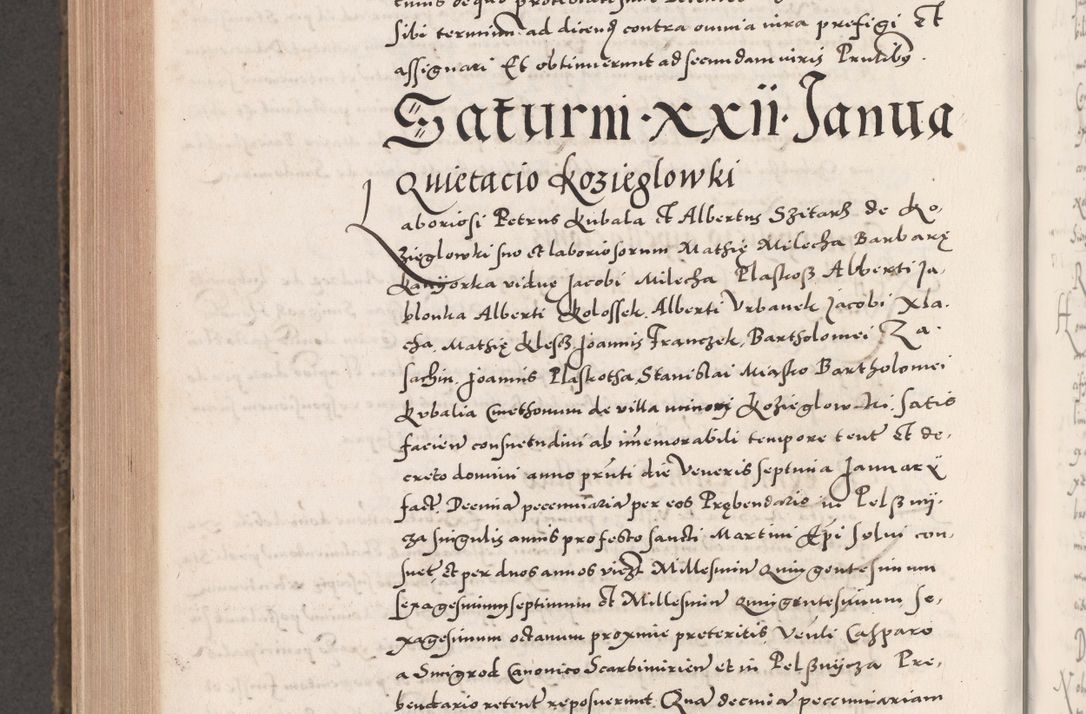 sibi terminum ad dicend contra omnia iura prefigi Et
assignari Et obtinuerunt ad secundam iuris Pntibus.
Saturni · xxii · Janua
Quietacio Kozieglowki
Laboriosi Petrus Kubala Et Albertus Szitarz de Ko-
zięglowki suo et laboriosorum Mathię Milecha Barbarę
Kanyorka viduę Jacobi Milecha Plaskosz Alberti Ja-
blonka Alberti Kolossek Alberti Vrbanek Jacobi Xla-
cha Mathię Klesz Joannis Franczek, Bartholomei Za-
sachin Joannis Plaskotha Stanislai Miasko Bartholomei
Kubalia Cmethonum de villa minori Kozieglowki. Satis
facien consuetudini ab immemorabili tempore tent Et de-
creto domini anno prnti die Veneris septima Januarÿ
fact. Decima pecuniaria per eos Prębendario in Pelsznÿ-
cza singulis annis pro festo sancti Martini Epi solui con-
suet, et per duos annos vidzt Millesimum Quingentesimum
sexagesimum septimum Et Millesimum quingentesimum se-
xagesimum octauum proxime preteritis, Venli Casparo
a Smigrod Canonico Scarbimirien et in Pelsznÿcza Pre-
bendario retent reposuerunt. Qua decima pecuniariam